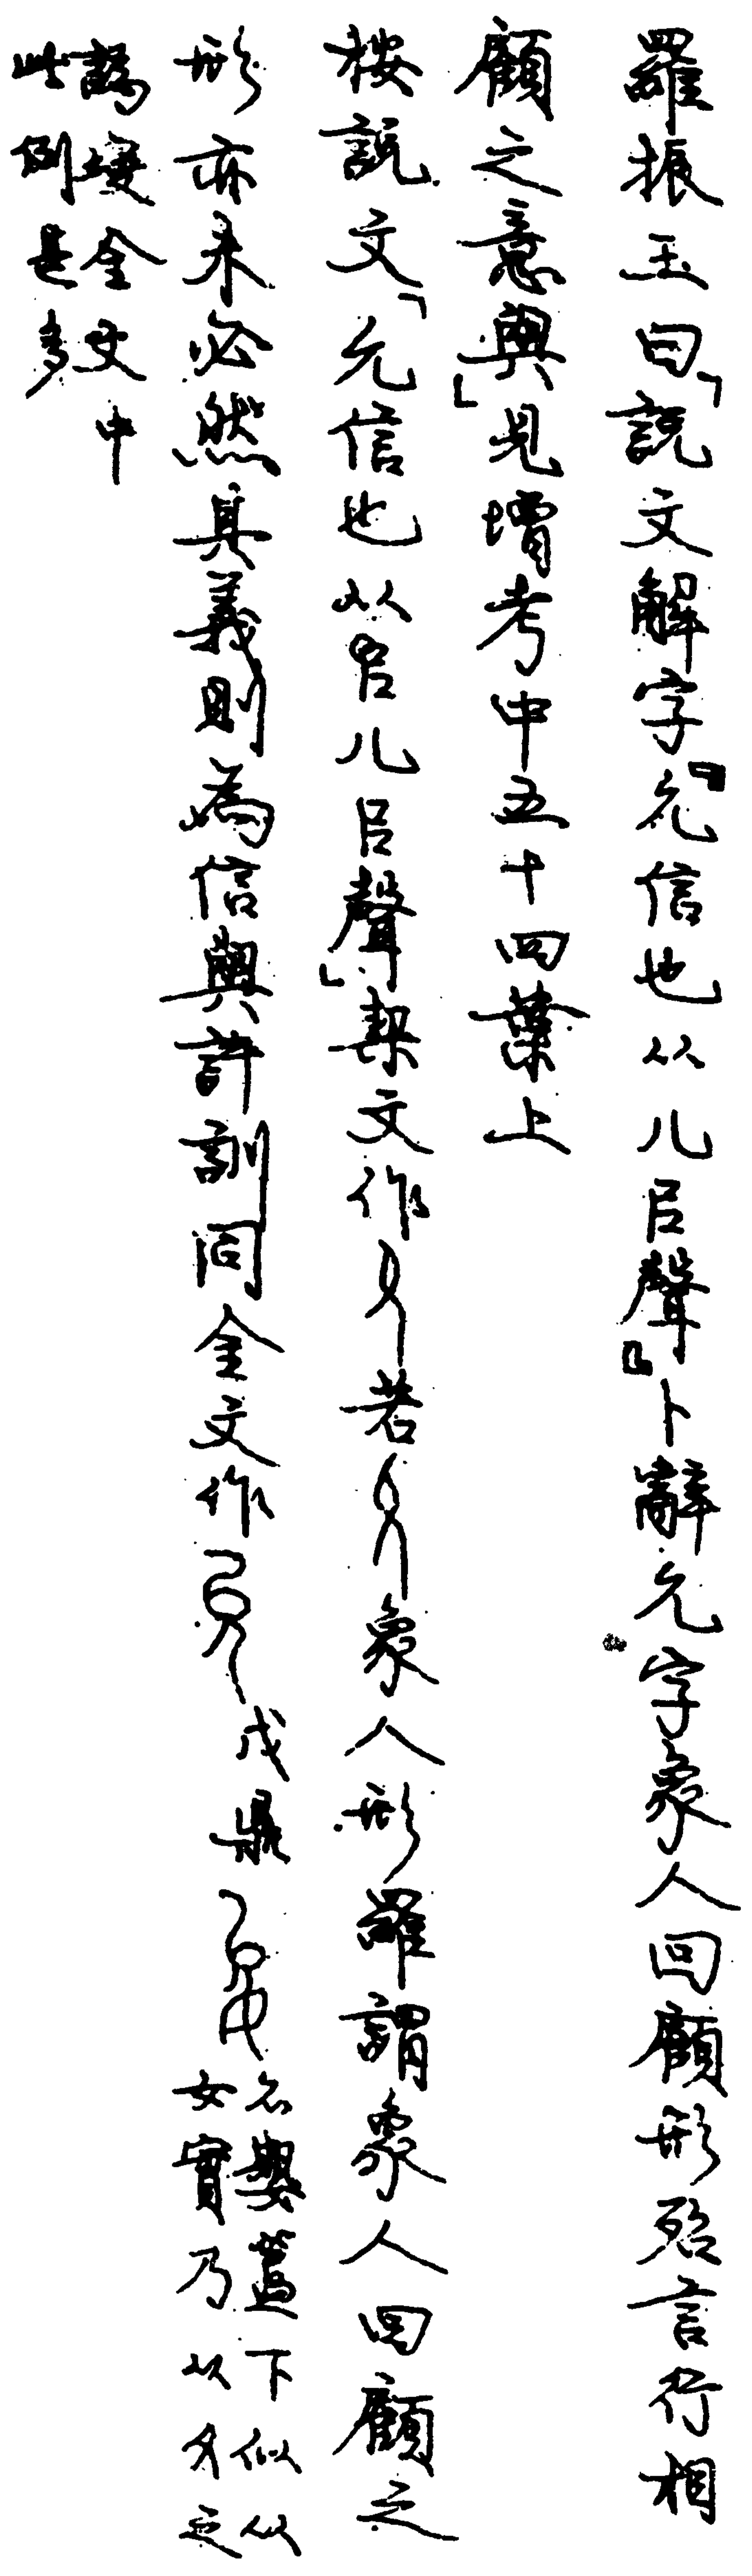 羅振玉曰「說文解字『允信也从儿㠯聲』卜辭允字象人回顧形殆言行相
顧之意與」見增考中五十四葉上
按說文「允信也从㠯儿㠯聲」契文作若象人形羅謂象人回顧之
形亦未必然其義則為信與許訓同金文作戊鼎
不𡢁簋下似从
女實乃从夊之
譌變金文中
此例甚多